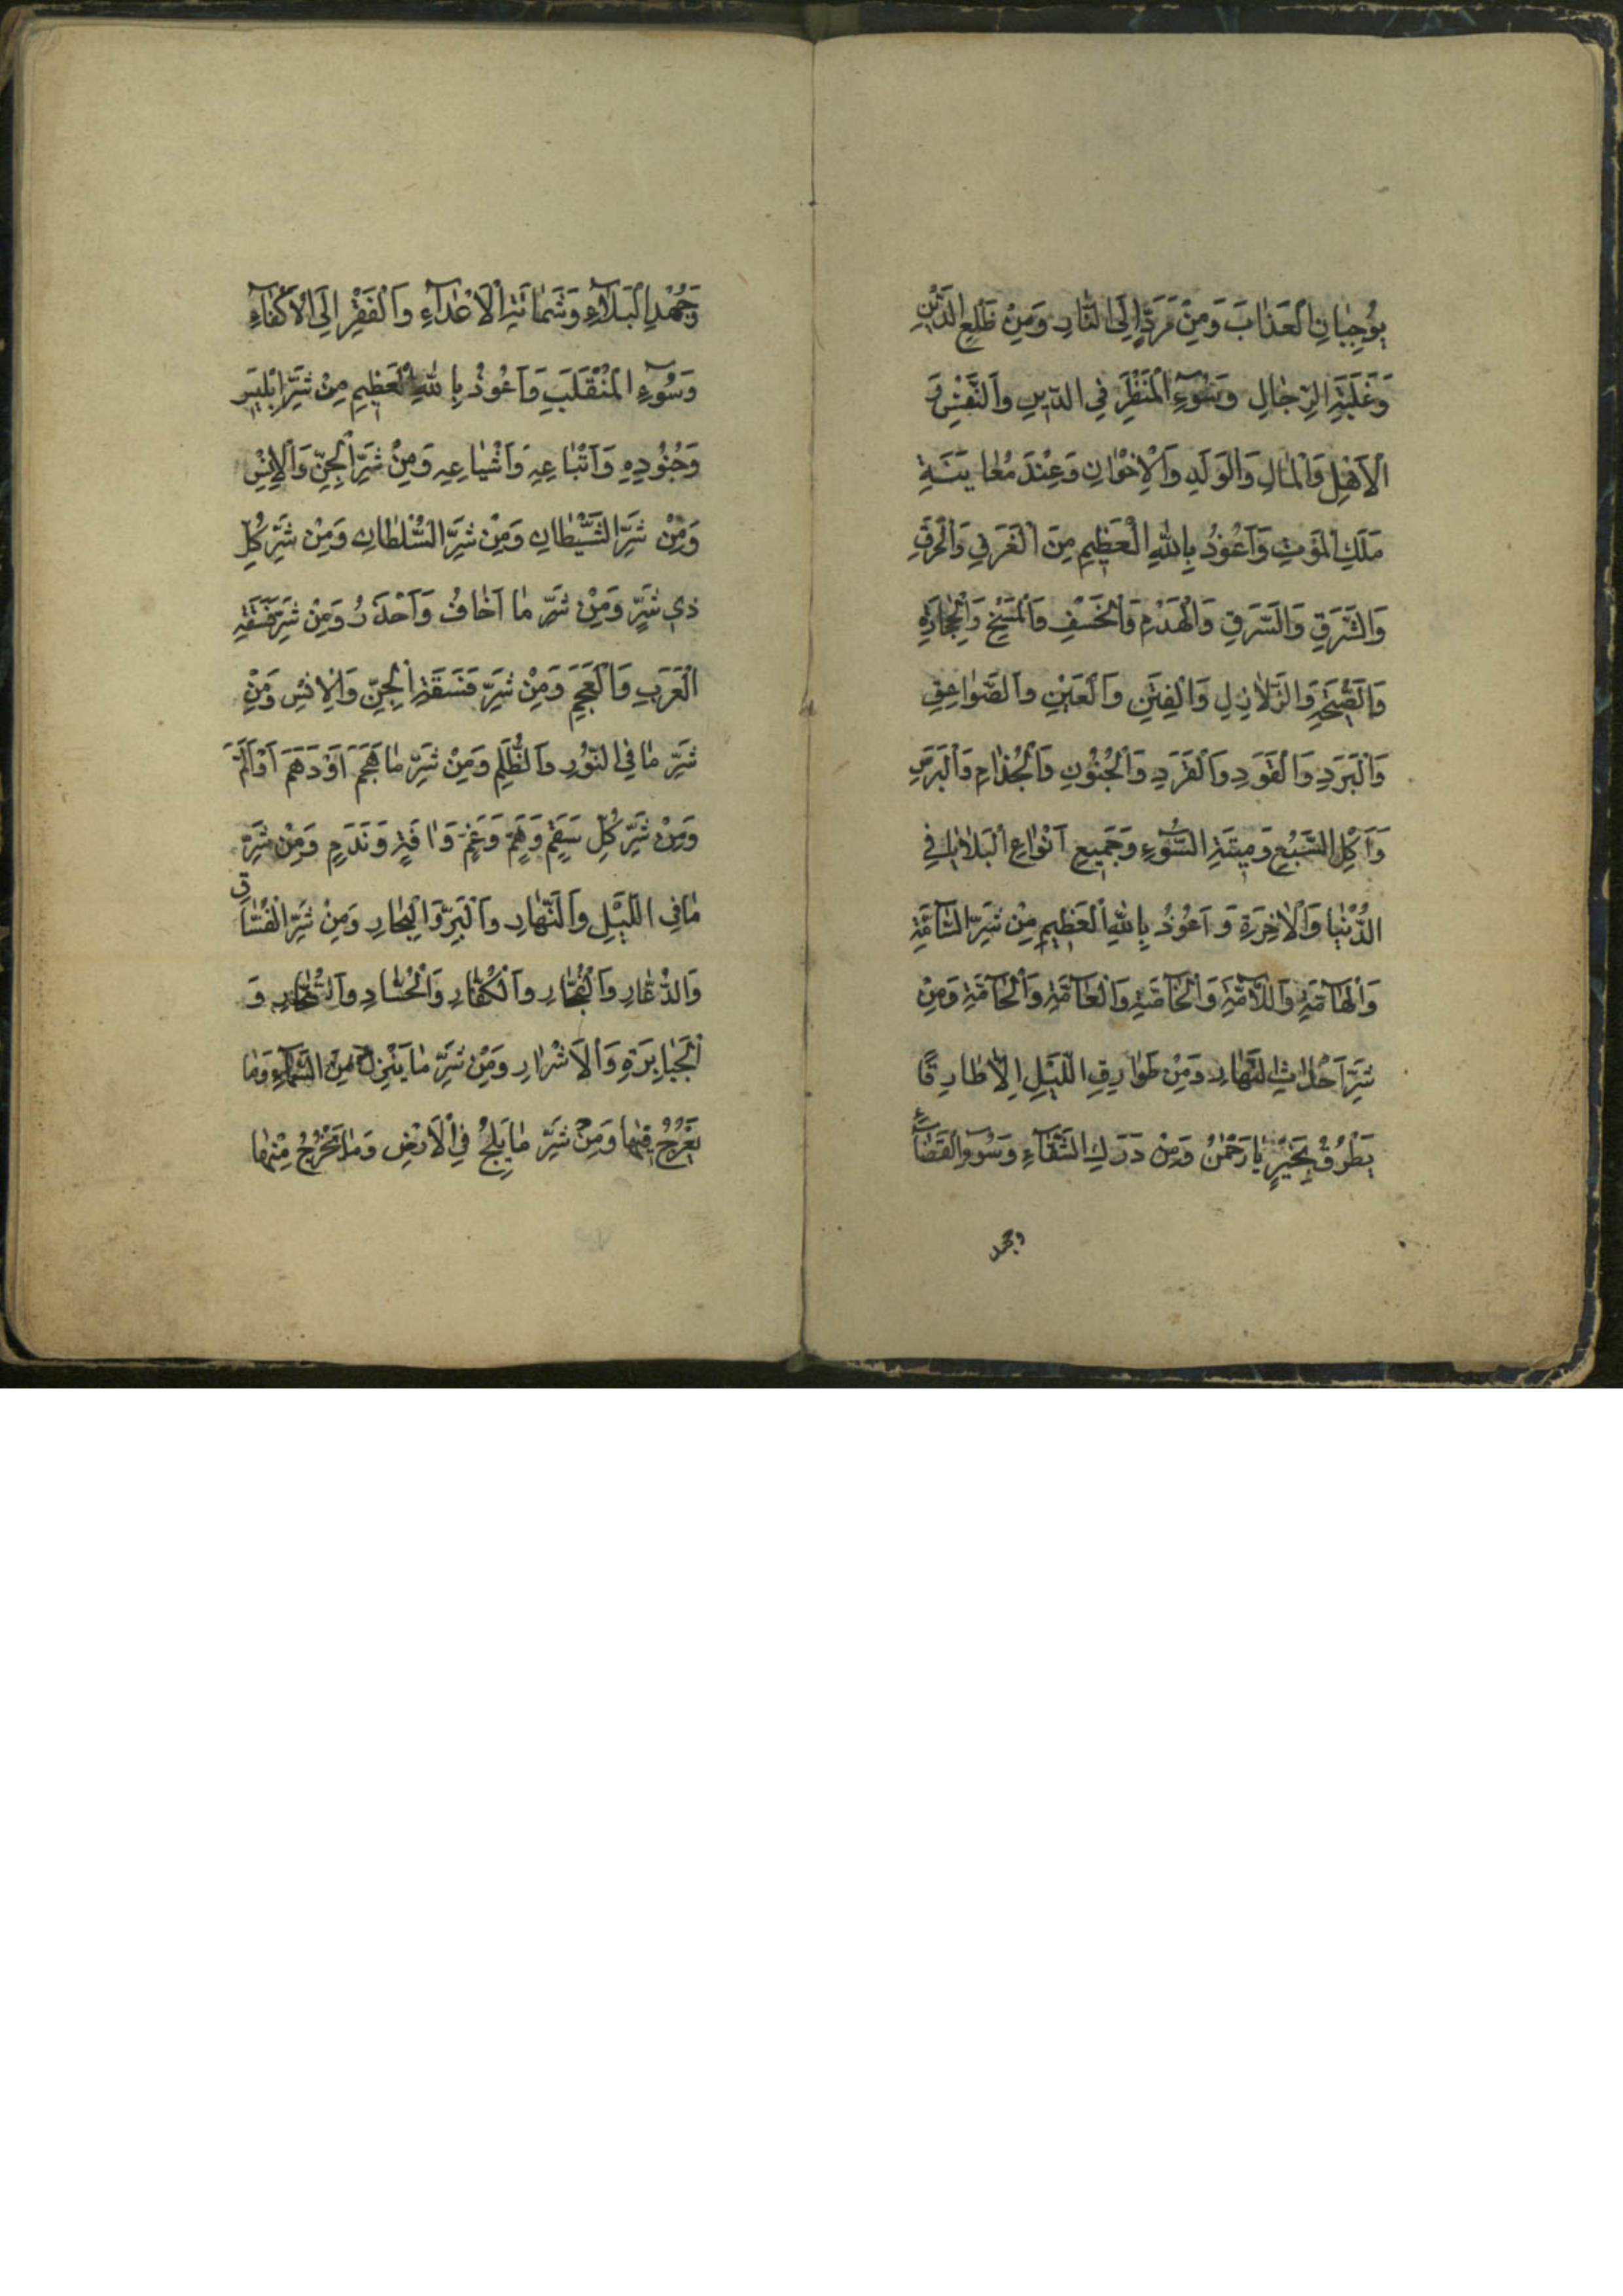 يُوجِبٰانِ الْعَذٰابَ وَمِنْ مَرَدٍّ اِلَى النّٰارِ وَمِنْ ظَلَعِ الدَّيْنِ
وَغَلَبَةِ الرِّجٰالِ وَسُوۤءِ الْمَنْظَرِ فِي الدّ۪ينِ وَالنَّفْسِ وَ
الْاَهْلِ وَالْمٰالِ وَالْوَلَدِ وَالْاِخْوٰانِ وَعِنْدَ مُعٰايَنَةِ
مَلَكِ الْمَوْتِ وَاَعُوذُ بِاللّٰهِ الْعَظ۪يمِ مِنَ الْغَرَقِ وَالْحَرَقِ
وَالشَّرَقِ وَالسَّرَقِ وَالْهَدْمِ وَالْخَسْفِ وَالْمَسْخِ وَالْحِجٰارَةِ
وَالصَّيْحَةِ وَالزَّلٰازِلِ وَالْفِتَنِ وَالْعَيْنِ وَالصَّوٰاعِقِ
وَالْبَرَدِ وَالْقَوَدِ وَالْقَرَدِ وَالْجُنُونِ وَالْجُذٰامِ وَالْبَرَصِ
وَاَكْلِ السَّبُعِ وَم۪يتَةِ السُّوۤءِ وَجَم۪يعِ اَنْوٰاعِ الْبَلٰايٰا فِي
الدُّنْيٰا وَالْاٰخِرَةِ وَ اَعُوذُ بِاللّٰهِ الْعَظ۪يمِ مِنْ شَرِّ السّٰامَّةِ
وَالْهٰآمَّةِ وَاللّٰآمَّةِ وَالْخٰآصَّةِ وَالْعٰآمَّةِ وَالْحٰآمَّةِ وَمِنْ
شَرِّ اَحْدٰاثِ النَّهٰارِ وَمِنْ طَوٰارِقِ اللَّيْلِ اِلّٰا طٰارِقًا
يَطْرُقُ بِخَيْرٍ يٰا رَحْمٰنُ وَمِنْ دَرَكِ الشَّقٰآءِ وَسُوۤءِ الْقَضٰآءِ
وجهد
وَجُهْدِ الْبَلٰآءِ وَشَمٰاتَةِ الْاَعْدٰآءِ وَالْفَقْرِ اِلَى الْاَكْفٰآءِ
وَسُوۤءِ الْمُنْقَلَبِ وَاَعُوذُ بِاللّٰهِ الْعَظ۪يمِ مِنْ شَرِّ اِبْل۪يسَ
وَجُنُودِهِ وَاَتْبٰاعِهِ وَاَشْيٰاعِهِ وَمِنْ شَرِّ الْجِنِّ وَالْاِنْسِ
وَمِنْ شَرِّ الشَّيْطٰانِ وَمِنْ شَرِّ السُّلْطٰانِ وَمِنْ شَرِّ كُلِّ
ذ۪ي شَرٍّ وَمِنْ شَرِّ مٰا اَخٰافُ وَاَحْذَرُ وَمِنْ شَرِّ فَسَقَةِ
الْعَرَبِ وَالْعَجَمِ وَمِنْ شَرِّ فَسَقَةِ الْجِنِّ وَالْاِنْسِ وَمِنْ
شَرِّ مٰا فِي النُّورِ وَالظُّلَمِ وَمِنْ شَرِّ مٰا هَجَمَ اَوْ دَهَمَ اَوْ اَلَمَّ
وَمِنْ شَرِّ كُلِّ سَقَمٍ وَهَمٍّ وَغَمٍّ وَاٰفَةٍ وَنَدَمٍ وَمِنْ شَرِّ
مٰا فِي اللَّيْلِ وَالنَّهٰارِ وَالْبَرِّ وَالْبِحٰارِ وَمِنْ شَرِّ الْفُسّٰاقِ
وَالدُّعّٰارِ وَالْفُجّٰارِ وَالْكُفّٰارِ وَالْحُسّٰادِ وَ
الْجَبٰابِرَةِ وَالْاَشْرٰارِ وَمِنْ شَرِّ مٰا يَنْزِلُ مِنَ السَّمٰآءِ وَمٰا
يَعْرُجُ ف۪يهٰا وَمِنْ شَرِّ مٰا يَلِجُ فِي الْاَرْضِ وَمٰا يَخْرُجُ مِنْهٰا